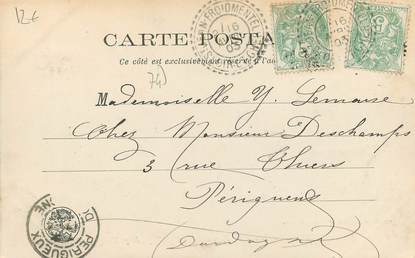 12€
CARTE POSTA
Ce côté est exclusivement réservé à l'a
74)
Mademoiselle Y. Lemaire
Chez Monsieur Deschamps
3 rue Thiers
Périgueux
Dordogne
PERIGUEUX
16
03